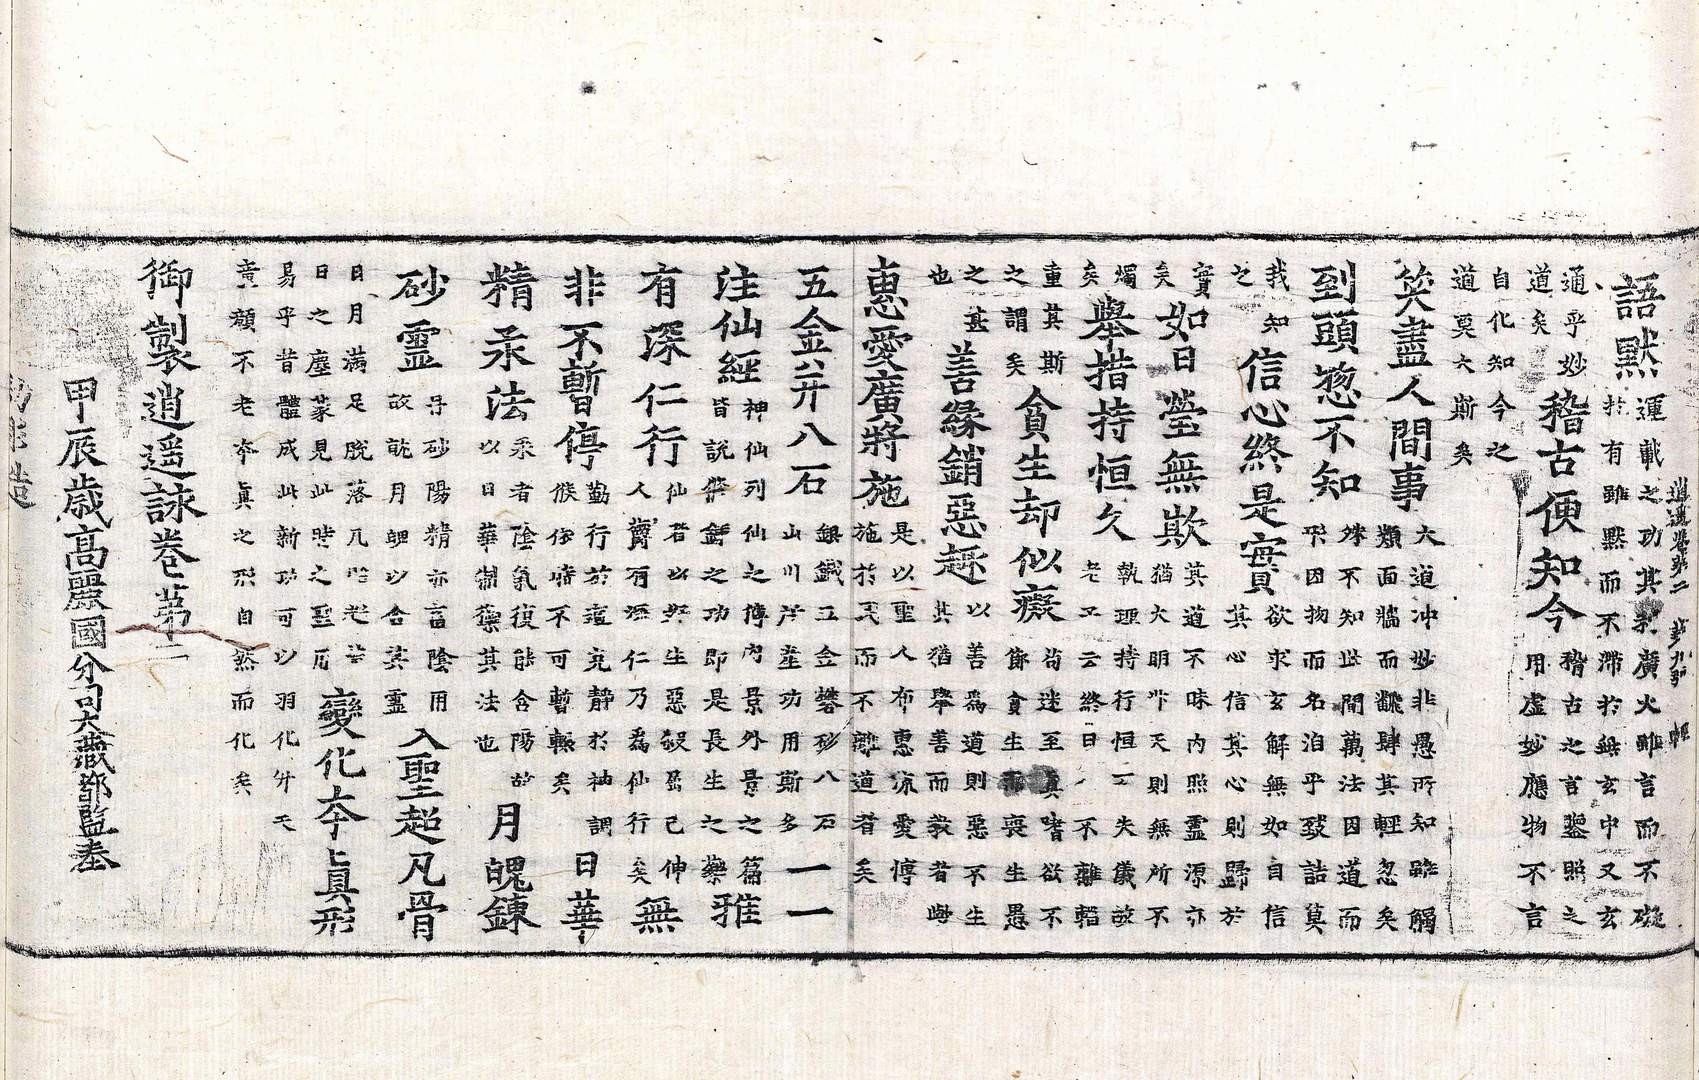 逍遥卷第二 第九張 輕
語默
運載之功其利廣大雖言而不礙
於有雖默而不滯於無玄中又玄
通乎妙
道矣
稽古便知今
稽古之言鑒照之
用虛妙應物不言
自化知今之
道莫大斯矣
笑盡人間事
大道冲妙非愚所知雖觸
類面牆而飜肆其輕忽矣
到頭惣不知
殊不知世間萬法因道而
形因物而名洎乎致詰莫
我知
之
信心終是實
欲求玄解無如自信
其心信其心則歸於
實
矣
如日瑩無欺
其道不昧內照靈源亦
猶大明中天則無所不
燭
矣
舉措持恒久
執理持行恒亡失儀故
老子云終日不離輜
重其斯
之謂矣
貪生却似癡
苟迷至真嗜欲不
節貪生而喪生愚
之甚
也
善緣銷惡趣
以善為道則惡不生
其猶舉善而教者歟
惠愛廣將施
是以聖人布惠流愛惇
施於民而不離道者矣
五金幷八石
銀鐵五金礬砂八石
山川產功用斯多
一一
注仙經
神仙列仙之傳內景外景之篇
皆說修鍊之功即是長生之藥
雅
有深仁行
仙者以好生惡殺屈己伸
人有深仁乃為仙行矣
無
非不暫停
勤行於道充靜於神調
候依時不可暫輟矣
日華
精汞法
汞者陰氣復能含陽故
以日華制藥其法也
月魄鍊
砂靈
丹砂陽精亦畜陰用
故就月魄以合其靈
入聖超凡骨
日月滿足脫落凡
日之塵蒙見此時之聖
變化夲真形
易乎昔體成此新功可以羽化升天
童顏不老夲真之形自然而化矣
御製逍遥詠卷第二
甲辰歲高麗國分司大藏都監奉
勑彫造